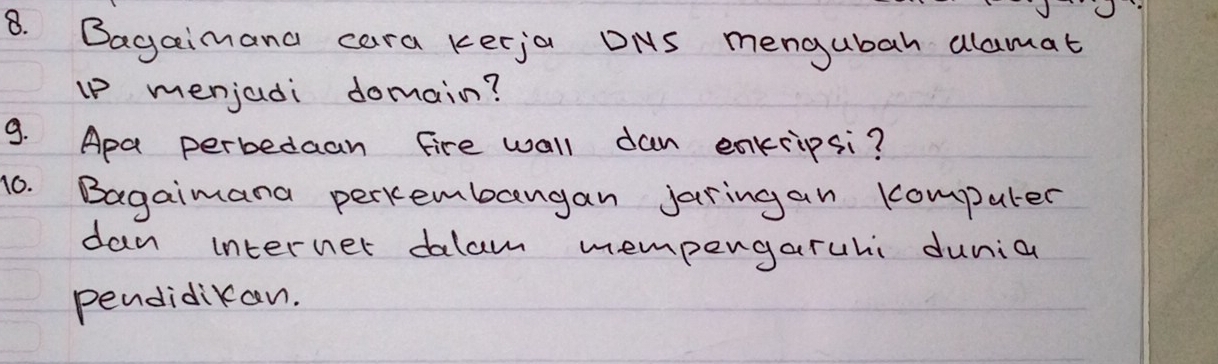 8. Bagaimana cara kerja DNS mengubah alamat
IP menjadi domain?
9. Apa perbedaan fire wall dan enkripsi?
10. Bagaimana perkembangan jaringan komputer
dan internet dalam mempengaruhi dunia
pendidikan.